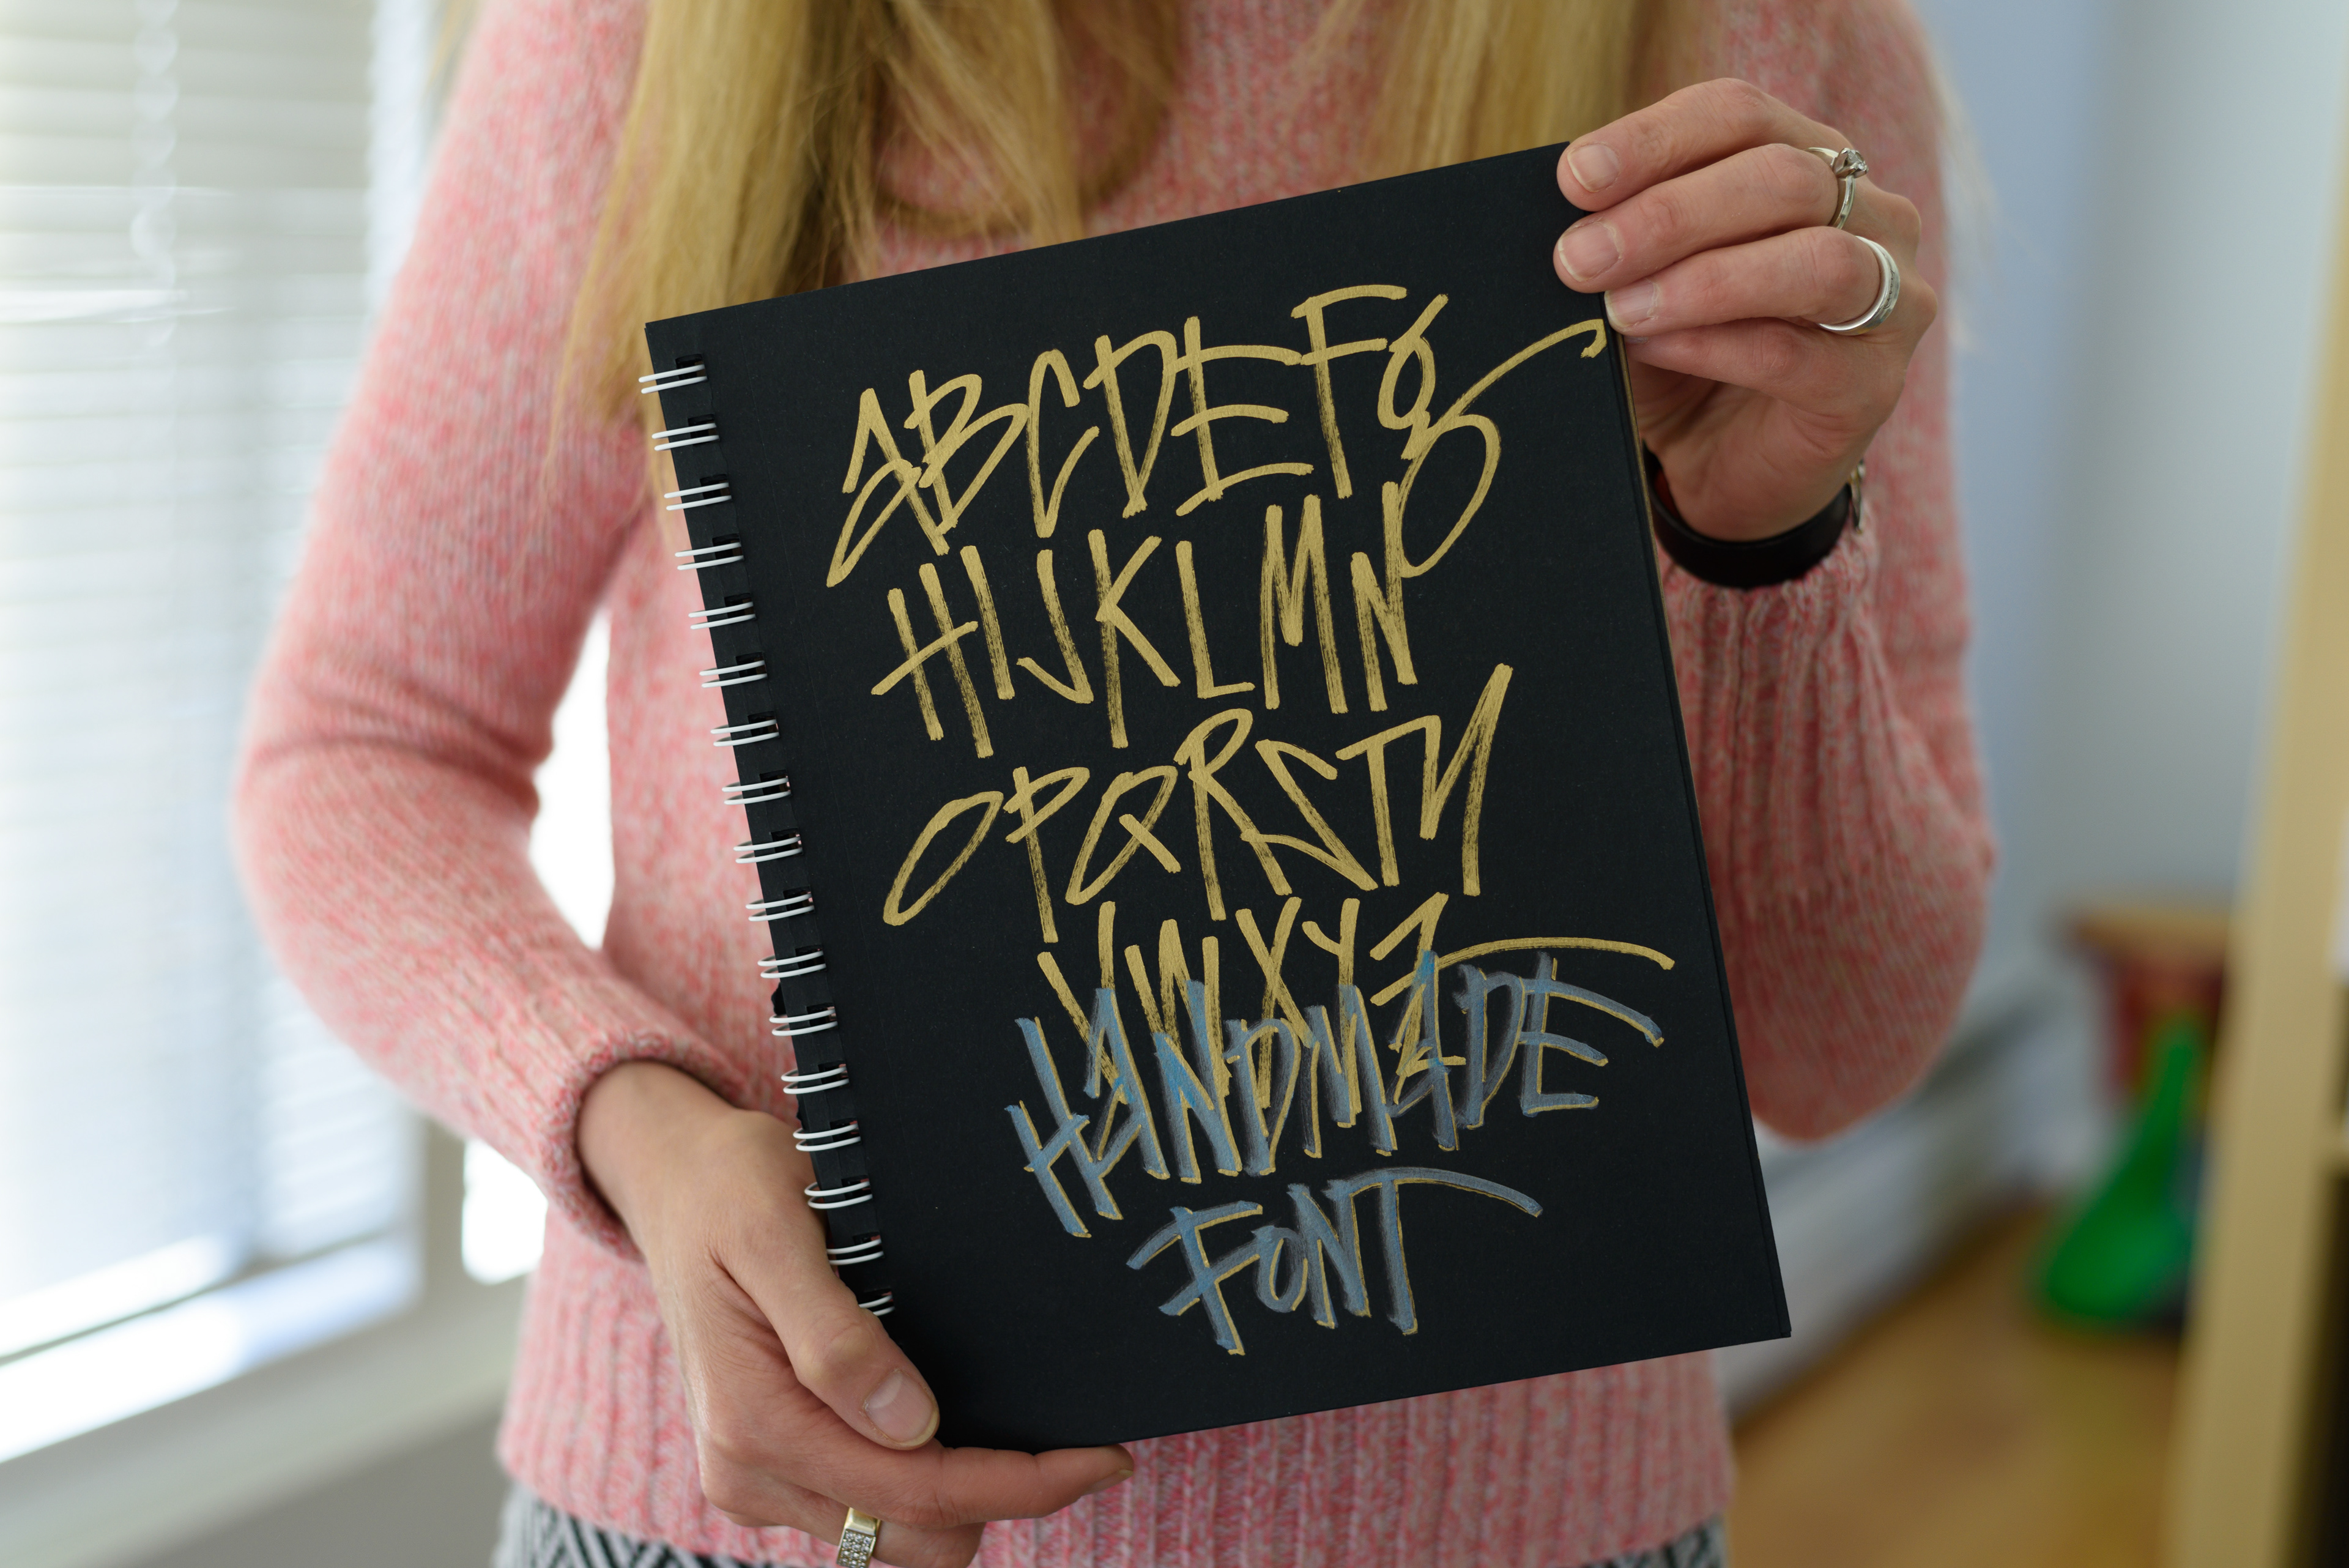 ABCDEFG
HIJKLMN
OPQRSTU
VWXYZ
HANDMADE
FONT